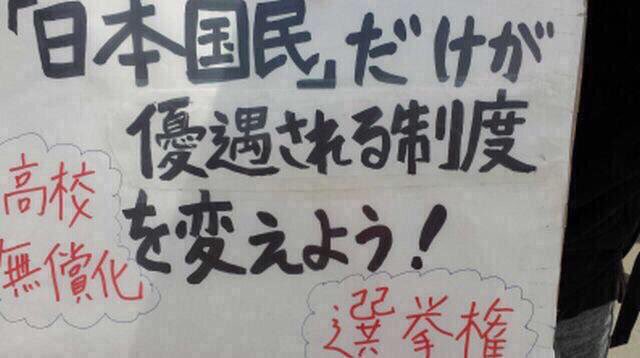 「日本国民」だけが
優遇される制度
を変えよう！
高校
無償化
選挙権